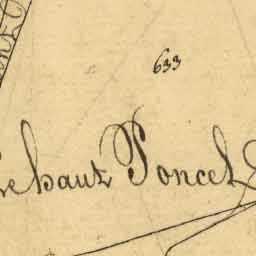 633
Le haut Poncel